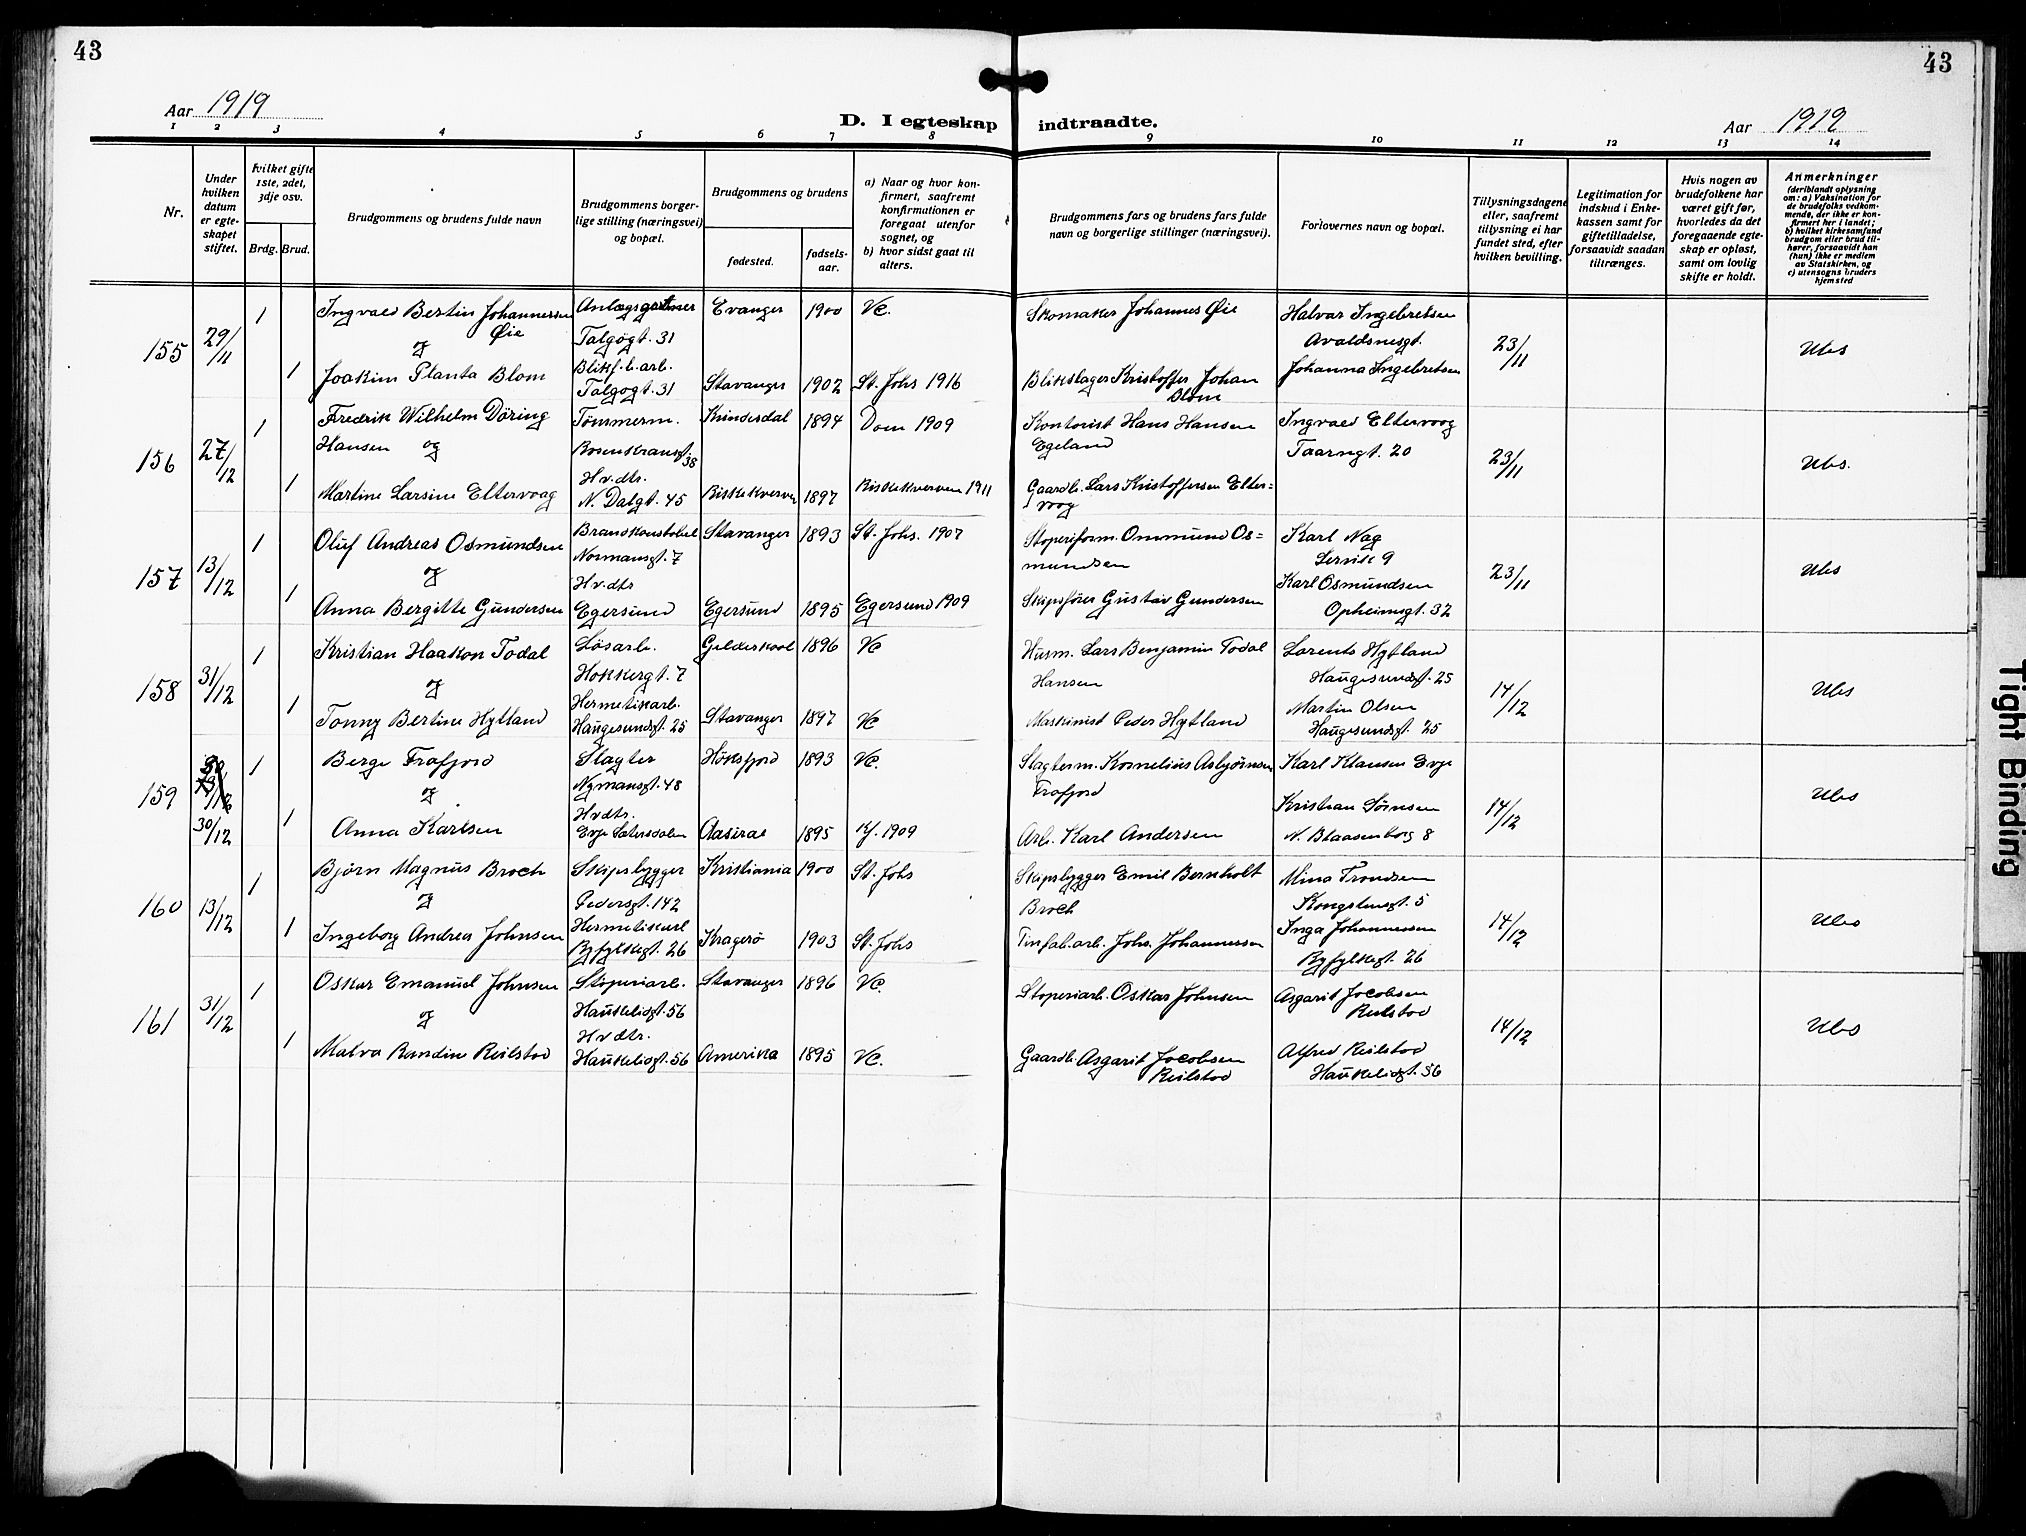 43
43
Aar 1919
D. I egteskap indtraadte.
Aar 1919
1 2 3 4 5 6 7 8 9 10 11 12 13 14
Nr.
Under hvilken datum er egteskapet stiftet.
hvilket gifte 1ste, 2det, 3dje osv.
Brdg. Brud.
Brudgommens og brudens fulde navn
Brudgommens borgerlige stilling (næringsvei) og bopæl.
Brudgommens og brudens
fødested.
fødselsaar.
a) Naar og hvor konfirmert, saafremt konfirmationen er foregaat utenfor sognet, og
b) hvor sidst gaat til alters.
Brudgommens fars og brudens fars fulde navn og borgerlige stillinger (næringsvei).
Forlovernes navn og bopæl.
Tillysningsdagene eller, saafremt tillysning ei har fundet sted, efter hvilken bevilling.
Legitimation for indskud i Enkekassen samt for giftetilladelse, forsaavidt saadan tiltrænges.
Hvis nogen av brudefolkene har været gift før, hvorledes da det foregaaende egteskap er opløst, samt om lovlig skifte er holdt.
Anmerkninger (deriblandt oplysning om: a) Vaksination for de brudefolks vedkommende, der ikke er konfirmert her i landet; b) hvilket kirkesamfund brudgom eller brud tilhører, forsaavidt han (hun) ikke er medlem av Statskirken, og c) utensogns bruders hjemsted
155 29/11 1 Ingvald Bertin Johannessen Øie Anlægsgartner Talgøgt. 31 Evanger 1900 Vc. Skomaker Johannes Øie Halvar Ingebretsen Avaldsnesgt. 23/11 Ubs
og
1 Joakim Planta Blom Blikf.b.arb. Talgøgt. 31 Stavanger 1902 St. Johs 1916 Blikslager Kristoffer Johan Blom Johanna Ingebretsen
156 27/12 1 Fredrik Wilhelm Döring Hansen og Tømmerm. Rosenkransgt. 38 Kvindesdal 1894 Dom 1909 Kontorist Hans Hansen Egeland Ingvald Eltervoog Taarngt. 20 23/11 Ubs.
1 Martine Larsine Eltervaag Hv.dtr. N. Dalgt. 45 1897 1911 Gaardb. Lars Kristoffersen Eltervoog
157 13/12 1 Oluf Andreas Osmundsen Branskonstabel Normansgt. 7 Stavanger 1893 St. Johs. 1907 Støperiform. Ommund Osmundsen Karl Nag Lervik 9 23/11 Ubs
og
1 Anna Bergitte Gundersen Hv.dtr Egersund Egersund 1895 Egersund 1909 Skipsfører Gustav Gundersen Karl Osmundsen Opheimsgt. 32
158 31/12 1 Kristian Haakon Todal Løsarb. Hokkergt. 7 Gilderskaal 1896 Vc Husm. Lars Benjamin Todal Hansen Lorents Hytland Haugesundsgt. 25 14/12 Ubs
og
1 Tonny Bertine Hytland Hermetikarb. Haugesundsgt. 25 Stavanger 1897 Vc Maskinist Peder Hytland Martin Olsen Haugesundsgt. 25
159 30/12 1 Berge Frafjord Slagter Nymansgt. 48 Høksfjord 1893 Vc. Slagterm. Kornelius Asbjørnsen Frafjord Karl Klausen Evje 14/12 Ubs
og
1 Anna Karlsen Hvdtr. Evje Sætersdalen Aaseral 1895 1909 Arb. Karl Andersen Kristian Sørnsen N. Blaasenborg 8
160 13/12 1 Bjørn Magnus Broch Skipsbygger Pedersgt. 142 Kristiania 1900 St. Johs Skipsbygger Emil Bernholt Broch Mina Trondsen Kongstensgt. 5 14/12 Ubs
og
1 Ingeborg Andrea Johnsen Hermetikarb Ryfylkegt. 26 Kragerø 1903 St. Johs Tinfab.arb. Johs. Johannessen Inga Johannessen Ryfylkegt. 26
161 31/12 1 Oskar Emanuel Johnsen Støperiarb. Haukeligt. 56 Stavanger 1896 Vc. Støperiarb. Oskar Johnsen Asgarit Jocobsen Reilstad 14/12 Ubs
og
1 Malva Randine Reilstad Hvdtr. Haukelidgt. 56 Amerika 1895 Vc. Gaardb. Asgarit Jocobsen Reilstad Alfred Reilstad Haukelidgt. 56
Tight Binding